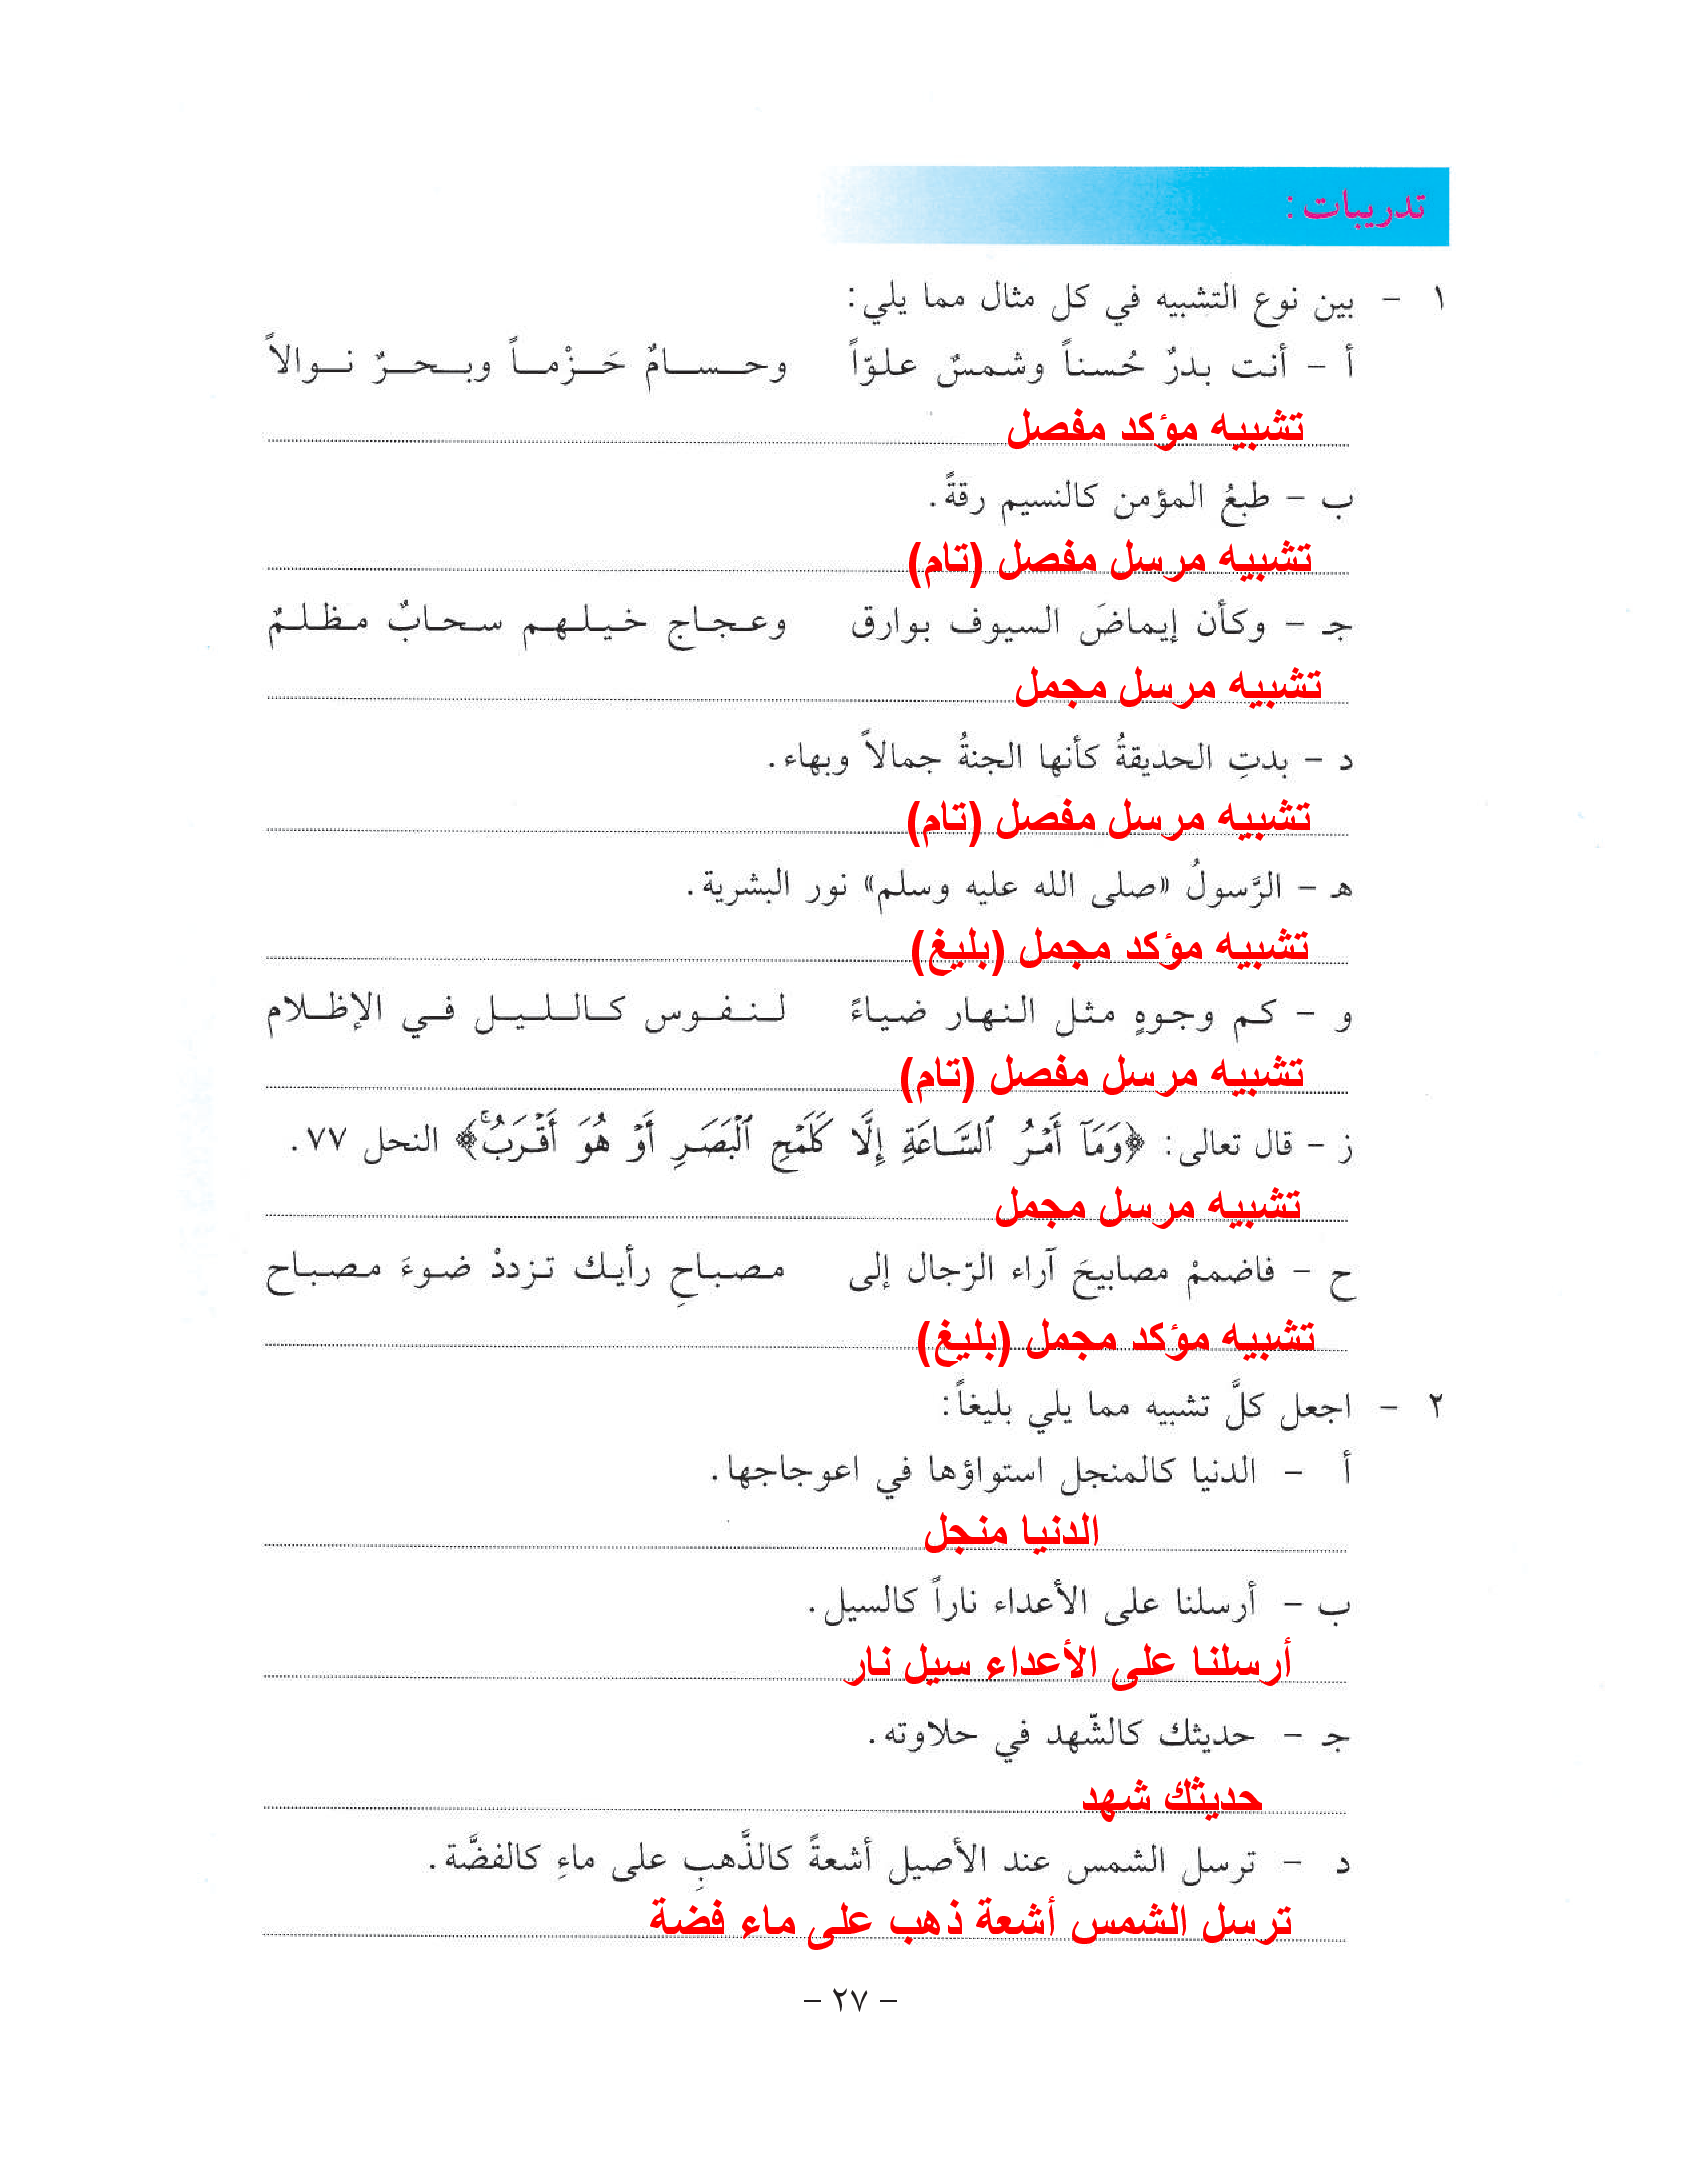 تدريبات :
١ - بين نوع التشبيه في كل مثال مما يلي:
أ - أنت بدرٌ حُسناً وشمسٌ علوّاً وحسامٌ حَزْماً وبحرٌ نوالاً
تشبيه مؤكد مفصل
ب - طبعُ المؤمن كالنسيم رقةً.
تشبيه مرسل مفصل (تام)
جـ - وكأن إيماضَ السيوف بوارق وعجاج خيلهم سحابٌ مظلمٌ
تشبيه مرسل مجمل
د - بدتِ الحديقةُ كأنها الجنةُ جمالاً وبهاء.
تشبيه مرسل مفصل (تام)
هـ - الرَّسولُ «صلى الله عليه وسلم» نور البشرية.
تشبيه مؤكد مجمل (بليغ)
و - كم وجوهٍ مثل النهار ضياءً لنفوس كالليل في الإظلام
تشبيه مرسل مفصل (تام)
ز - قال تعالى: ﴿وَمَآ أَمْرُ ٱلسَّاعَةِ إِلَّا كَلَمْحِ ٱلْبَصَرِ أَوْ هُوَ أَقْرَبُ ۚ﴾ النحل ٧٧.
تشبيه مرسل مجمل
ح - فاضممْ مصابيحَ آراء الرّجال إلى مصباحِ رأيك تزددْ ضوءَ مصباح
تشبيه مؤكد مجمل (بليغ)
٢ - اجعل كلَّ تشبيه مما يلي بليغاً:
أ - الدنيا كالمنجل استواؤها في اعوجاجها.
الدنيا منجل
ب - أرسلنا على الأعداء ناراً كالسيل.
أرسلنا على الأعداء سيل نار
جـ - حديثك كالشّهد في حلاوته.
حديثك شهد
د - ترسل الشمس عند الأصيل أشعةً كالذَّهبِ على ماءِ كالفضَّة.
ترسل الشمس أشعة ذهب على ماء فضة
- ٢٧ -